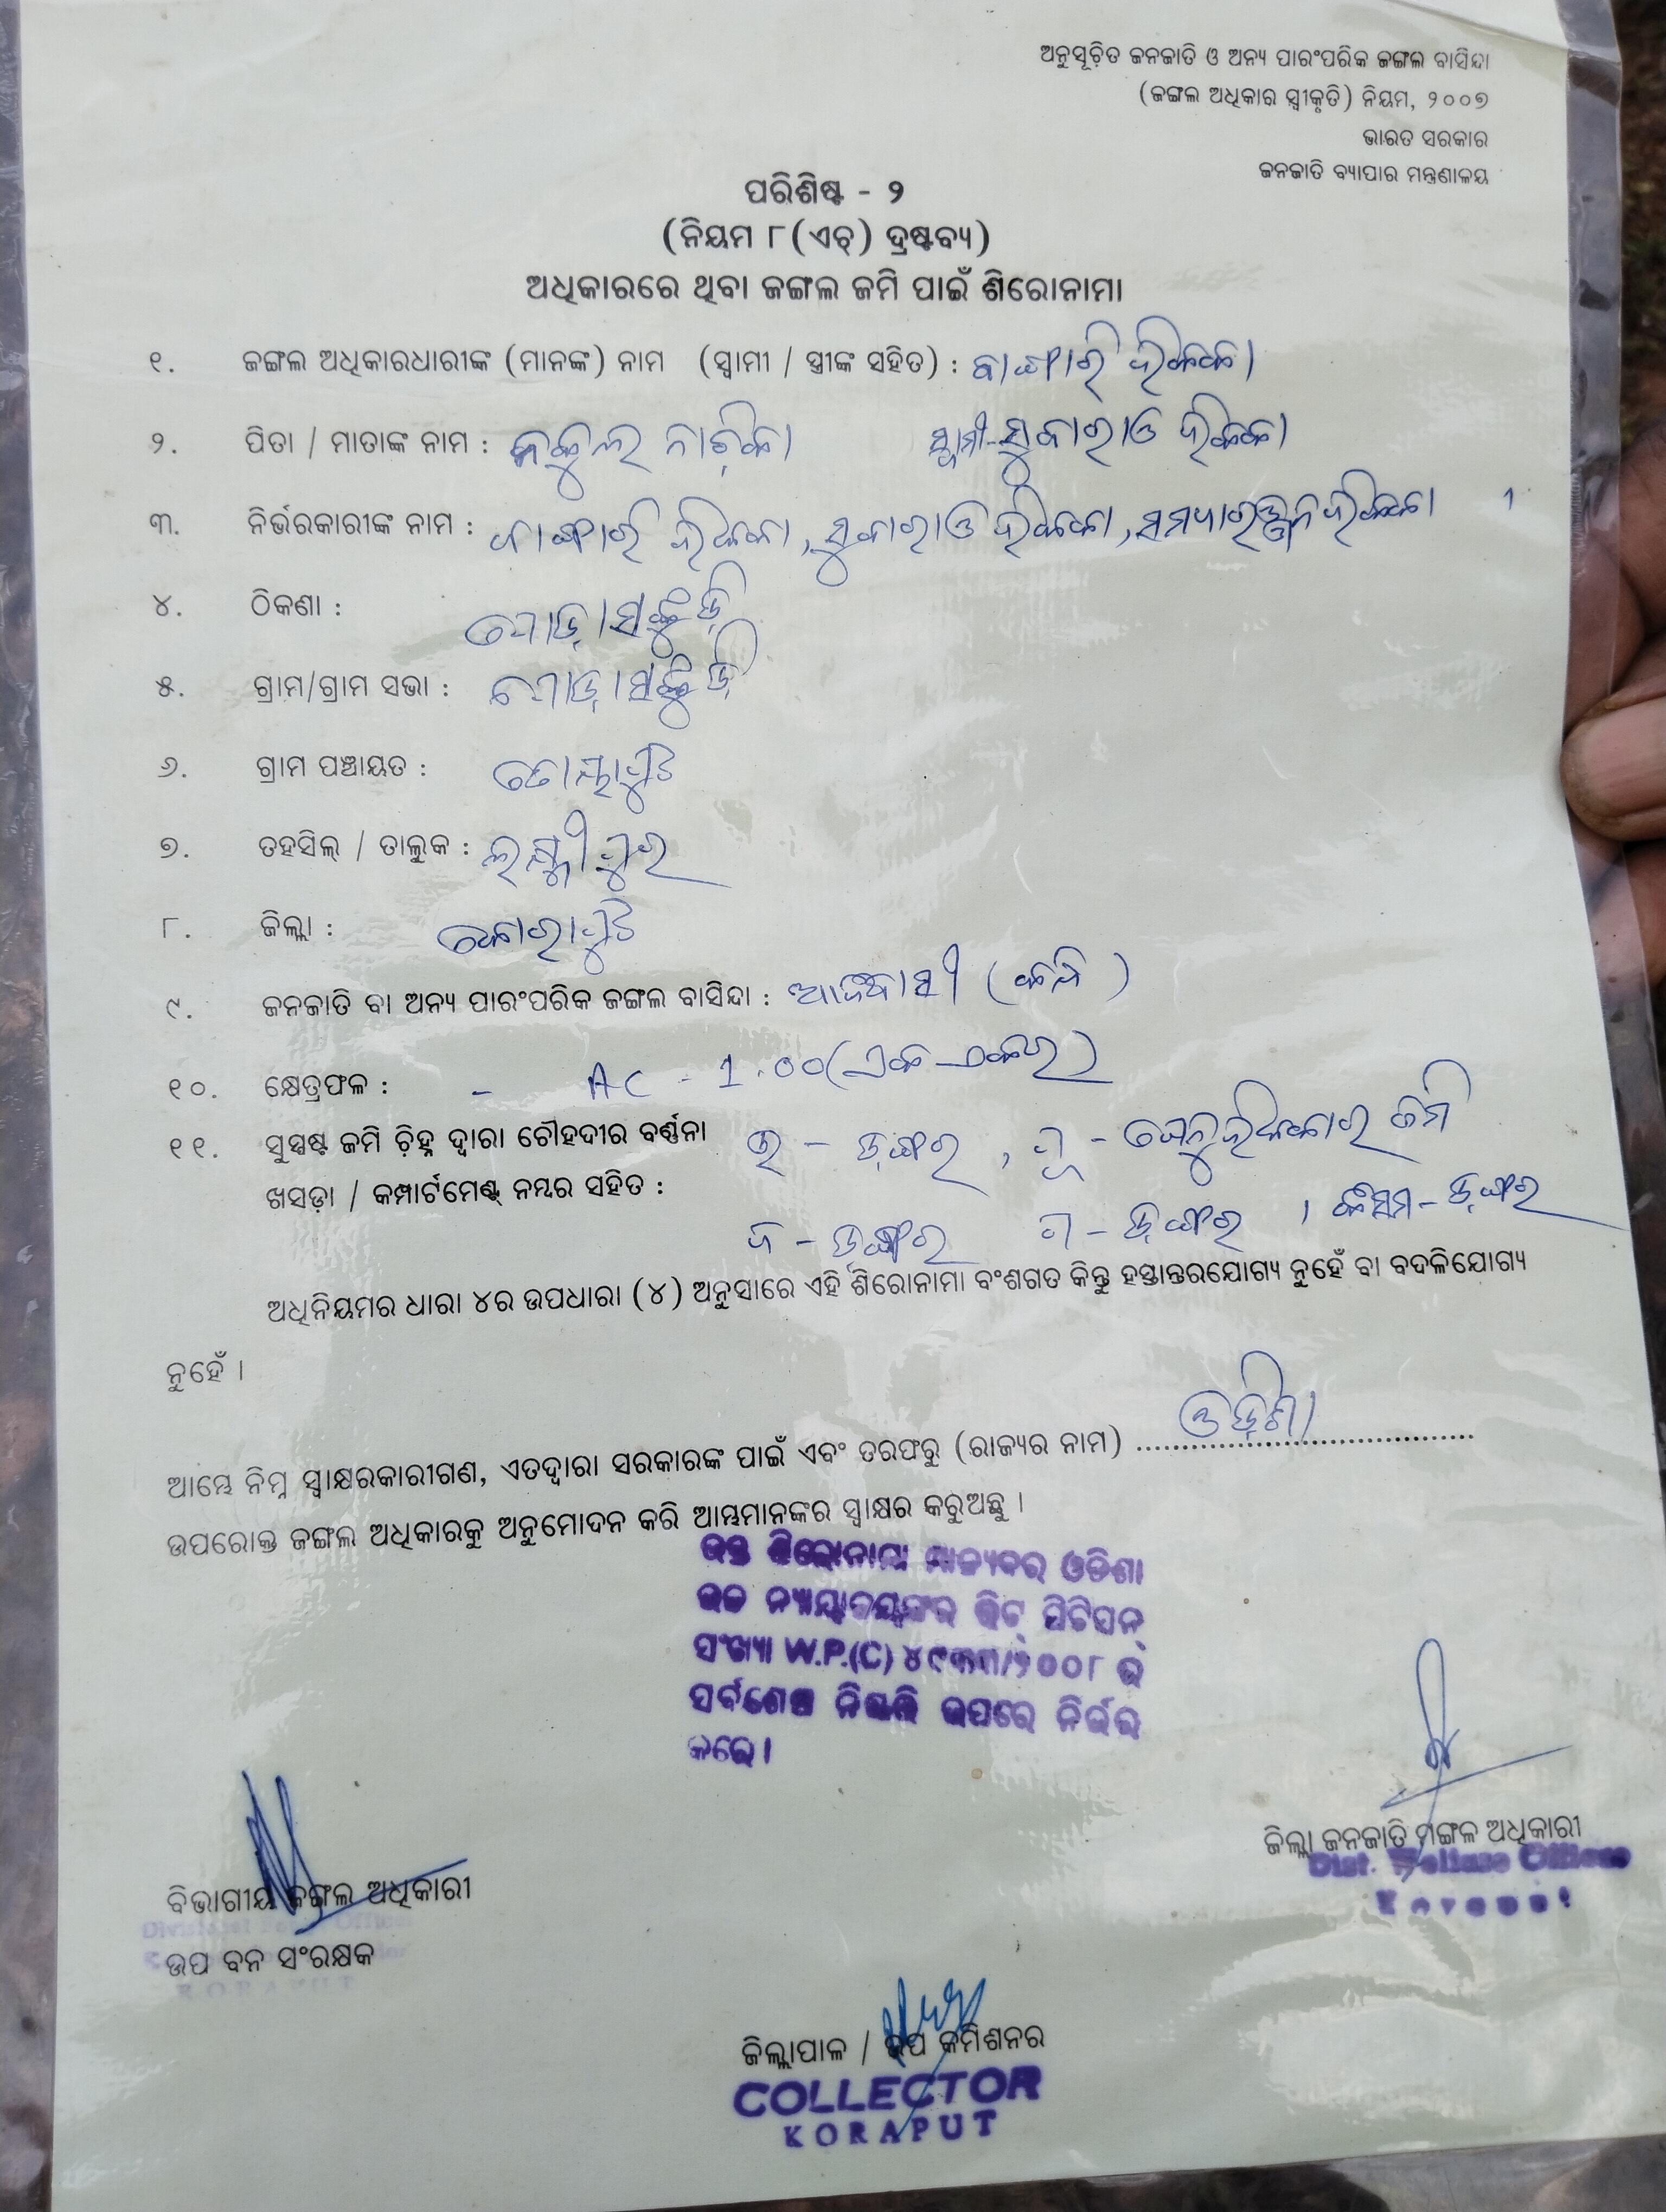 ଅନୁସୂଚିତ ଜନଜାତି ଓ ଅନ୍ୟ ପାରଂପରିକ ଜଙ୍ଗଲ ବାସିନ୍ଦା
(ଜଙ୍ଗଲ ଅଧିକାର ସ୍ଵୀକୃତି) ନିୟମ, ୨୦୦୭
ଭାରତ ସରକାର
ଜନଜାତି ବ୍ୟାପାର ମନ୍ତ୍ରଣାଳୟ
ପରିଶିଷ୍ଟ - ୨
(ନିୟମ ୮(ଏଚ୍) ଦ୍ରଷ୍ଟବ୍ୟ)
ଅଧିକାରରେ ଥିବା ଜଙ୍ଗଲ ଜମି ପାଇଁ ଶିରୋନାମା
୧. ଜଙ୍ଗଲ ଅଧିକାରଧାରୀଙ୍କ (ମାନଙ୍କ) ନାମ (ସ୍ଵାମୀ / ସ୍ତ୍ରୀଙ୍କ ସହିତ) :
୨. ପିତା / ମାତାଙ୍କ ନାମ : ନକୁଲ ସ୍ୱାମୀ-
୩. ନିର୍ଭରକାରୀଙ୍କ ନାମ :
୪. ଠିକଣା :
୫. ଗ୍ରାମ/ଗ୍ରାମ ସଭା :
୬. ଗ୍ରାମ ପଞ୍ଚାୟତ : ତୋୟାପୁଟ
୭. ତହସିଲ୍ / ତାଲୁକ : ଲକ୍ଷ୍ମୀପୁର
୮. ଜିଲ୍ଲା : କୋରାପୁଟ
୯. ଜନଜାତି ବା ଅନ୍ୟ ପାରଂପରିକ ଜଙ୍ଗଲ ବାସିନ୍ଦା : ଆଦିବାସୀ (କନ୍ଧ)
୧୦. କ୍ଷେତ୍ରଫଳ : - AC - 1.00 (ଏକ ଏକର)
୧୧. ସୁସ୍ପଷ୍ଟ ଜମି ଚିହ୍ନ ଦ୍ଵାରା ଚୌହଦୀର ବର୍ଣ୍ଣନା ଉ - ଡଙ୍ଗର, ପୂ - ଜମି
ଖସଡ଼ା / କମ୍ପାର୍ଟମେଣ୍ଟ୍ ନମ୍ବର ସହିତ : ଦ - ଡଙ୍ଗର ପ - ଡଙ୍ଗର । କିସମ - ଡଙ୍ଗର
ଅଧିନିୟମର ଧାରା ୪ର ଉପଧାରା (୪) ଅନୁସାରେ ଏହି ଶିରୋନାମା ବଂଶଗତ କିନ୍ତୁ ହସ୍ତାନ୍ତରଯୋଗ୍ୟ ନୁହେଁ ବା ବଦଳିଯୋଗ୍ୟ
ନୁହେଁ ।
ଆମ୍ଭେ ନିମ୍ନ ସ୍ଵାକ୍ଷରକାରୀଗଣ, ଏତଦ୍ଵାରା ସରକାରଙ୍କ ପାଇଁ ଏବଂ ତରଫରୁ (ରାଜ୍ୟର ନାମ) ଓଡ଼ିଶା
ଉପରୋକ୍ତ ଜଙ୍ଗଲ ଅଧିକାରକୁ ଅନୁମୋଦନ କରି ଆମ୍ଭମାନଙ୍କର ସ୍ଵାକ୍ଷର କରୁଅଛୁ ।
ଉକ୍ତ ଶିରୋନାମା ମାନ୍ୟବର ଓଡିଶା
ଉଚ୍ଚ ନ୍ୟାୟାଳୟଙ୍କର ରିଟ୍ ପିଟିସନ୍
ସଂଖ୍ୟା W.P.(C) ର
ସର୍ବଶେଷ ନିଷ୍ପତ୍ତି ଉପରେ ନିର୍ଭର
କରେ।
ଜିଲ୍ଲା ଜନଜାତି ମଙ୍ଗଳ ଅଧିକାରୀ
Dist. Welfare Officer
Koraput
ବିଭାଗୀୟ ଜଙ୍ଗଲ ଅଧିକାରୀ
ଉପ ବନ ସଂରକ୍ଷକ
KORAPUT
ଜିଲ୍ଲାପାଳ / ଉପ କମିଶନର
COLLECTOR
KORAPUT